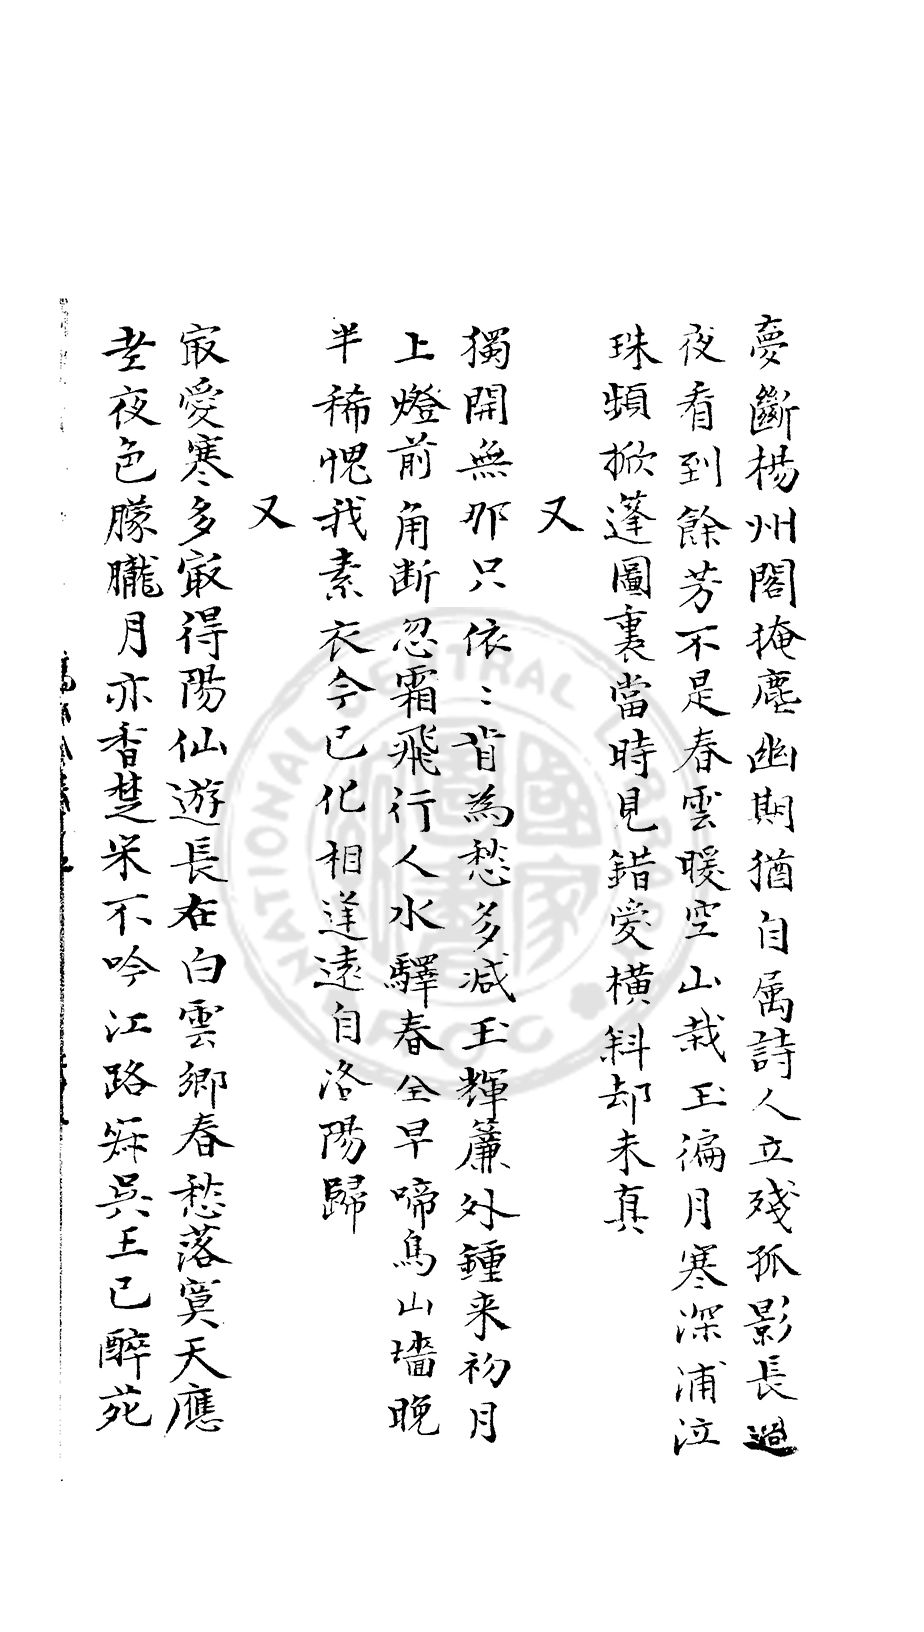 夢斷楊州閣掩塵幽期猶自属詩人立殘孤影長過
夜看到餘芳不是春雲暖空山栽玉徧月寒深浦泣
珠頻掀蓬圖裏當時見錯愛橫斜却未真
又
獨開無那只依〻肯為愁多减玉輝簾外鍾来初月
上燈前角断忽霜飛行人水驛春全早啼鳥山墻晚
半稀愧我素衣今已化相逢遠自洛陽歸
又
㝡愛寒多㝡得陽仙遊長在白雲鄉春愁落寞天應
老夜色朦朧月亦香楚客不吟江路寂吳王已醉苑
NATIONAL CENTRAL LIBRARY
R.O.C.
國家圖書